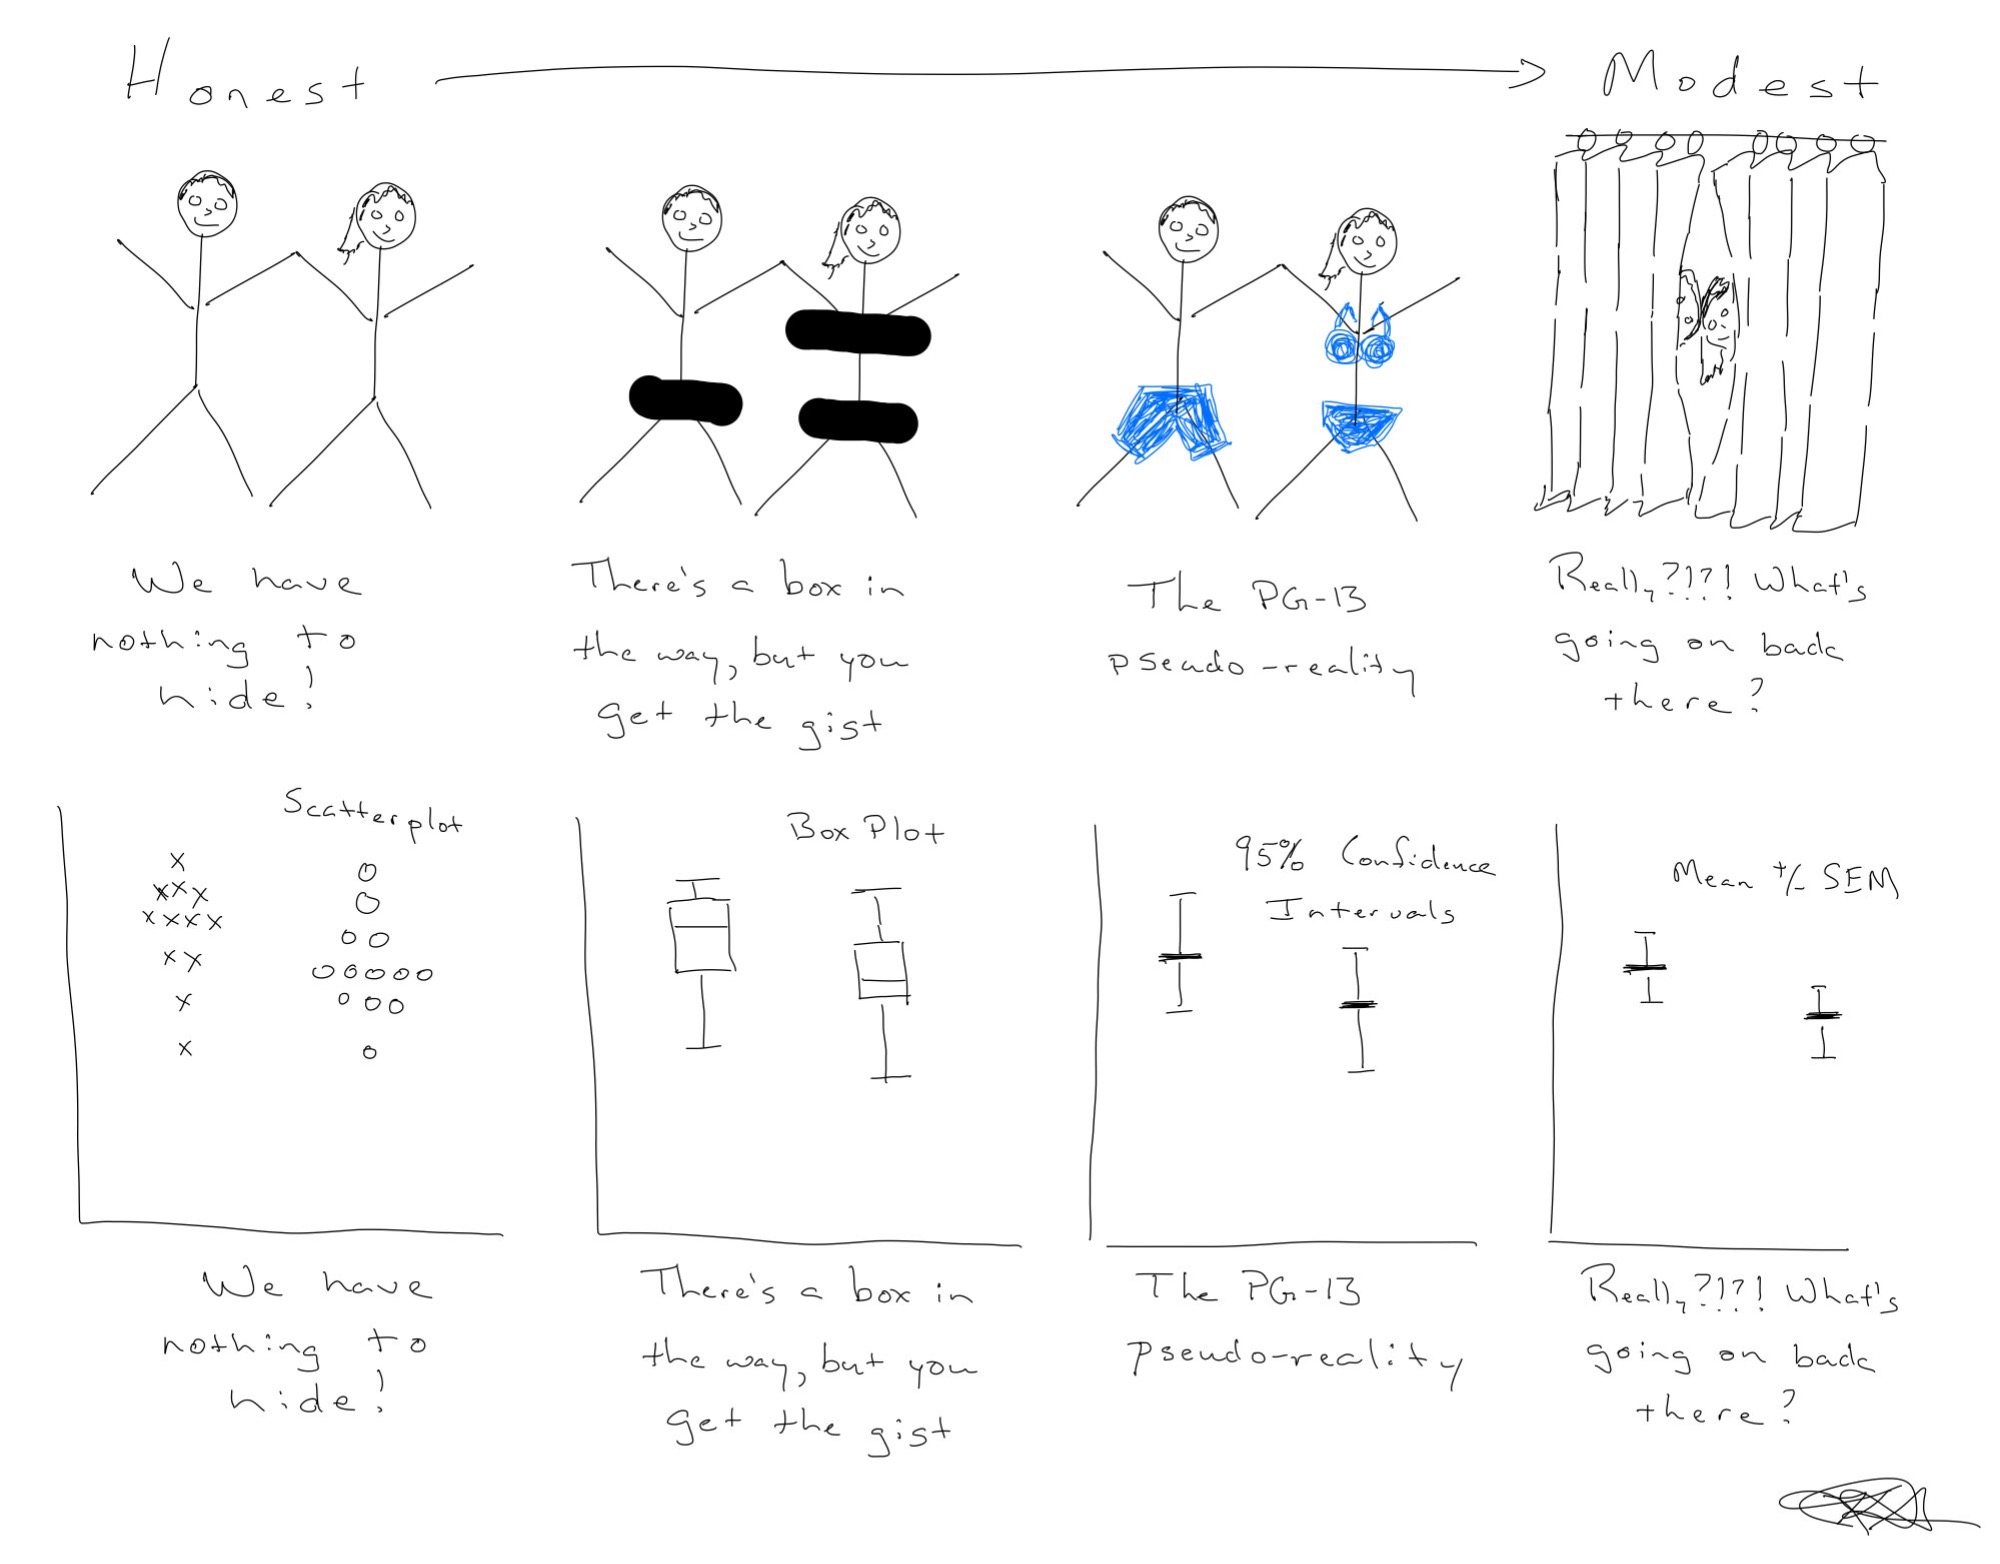 Honest
Modest
We have
nothing to
hide!
There's a box in
the way, but you
get the gist
The PG-13
pseudo-reality
Really?!?! What's
going on back
there?
Scatterplot
Box Plot
95% Confidence
Intervals
Mean +/- SEM
We have
nothing to
hide!
There's a box in
the way, but you
get the gist
The PG-13
pseudo-reality
Really?!?! What's
going on back
there?